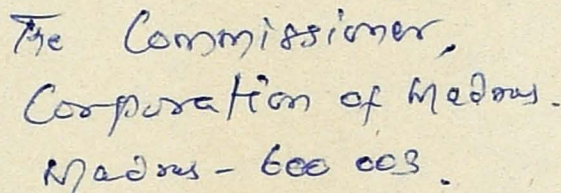 The Commissioner,
Corporation of Madras.
Madras - 600 003.